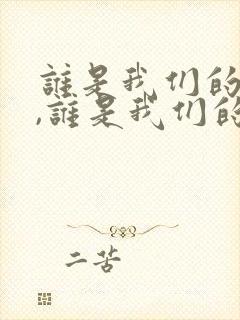 誰是我们的
,誰是我们的
二苦